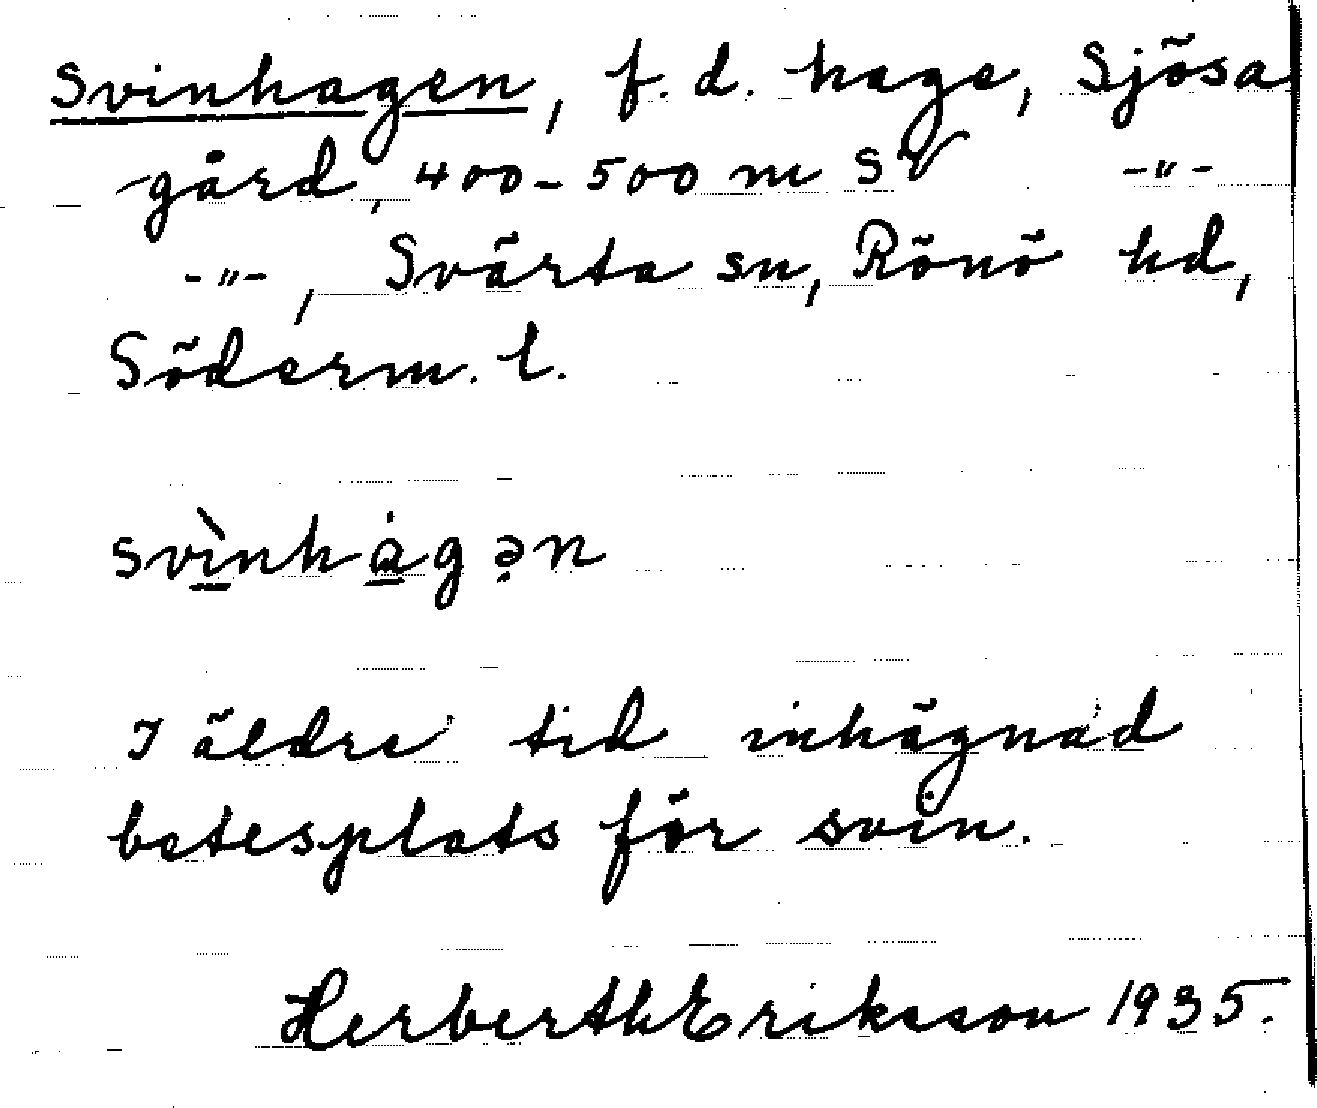 Svinhagen, f. d. hage, Sjösa
gård, 400-500 m SV -"-
-"-, Svärta sn, Rönö hd,
Söderm. l.
svìnhȧgən
I äldre tid inhägnad
betesplats för svin.
Herberth Eriksson 1935.